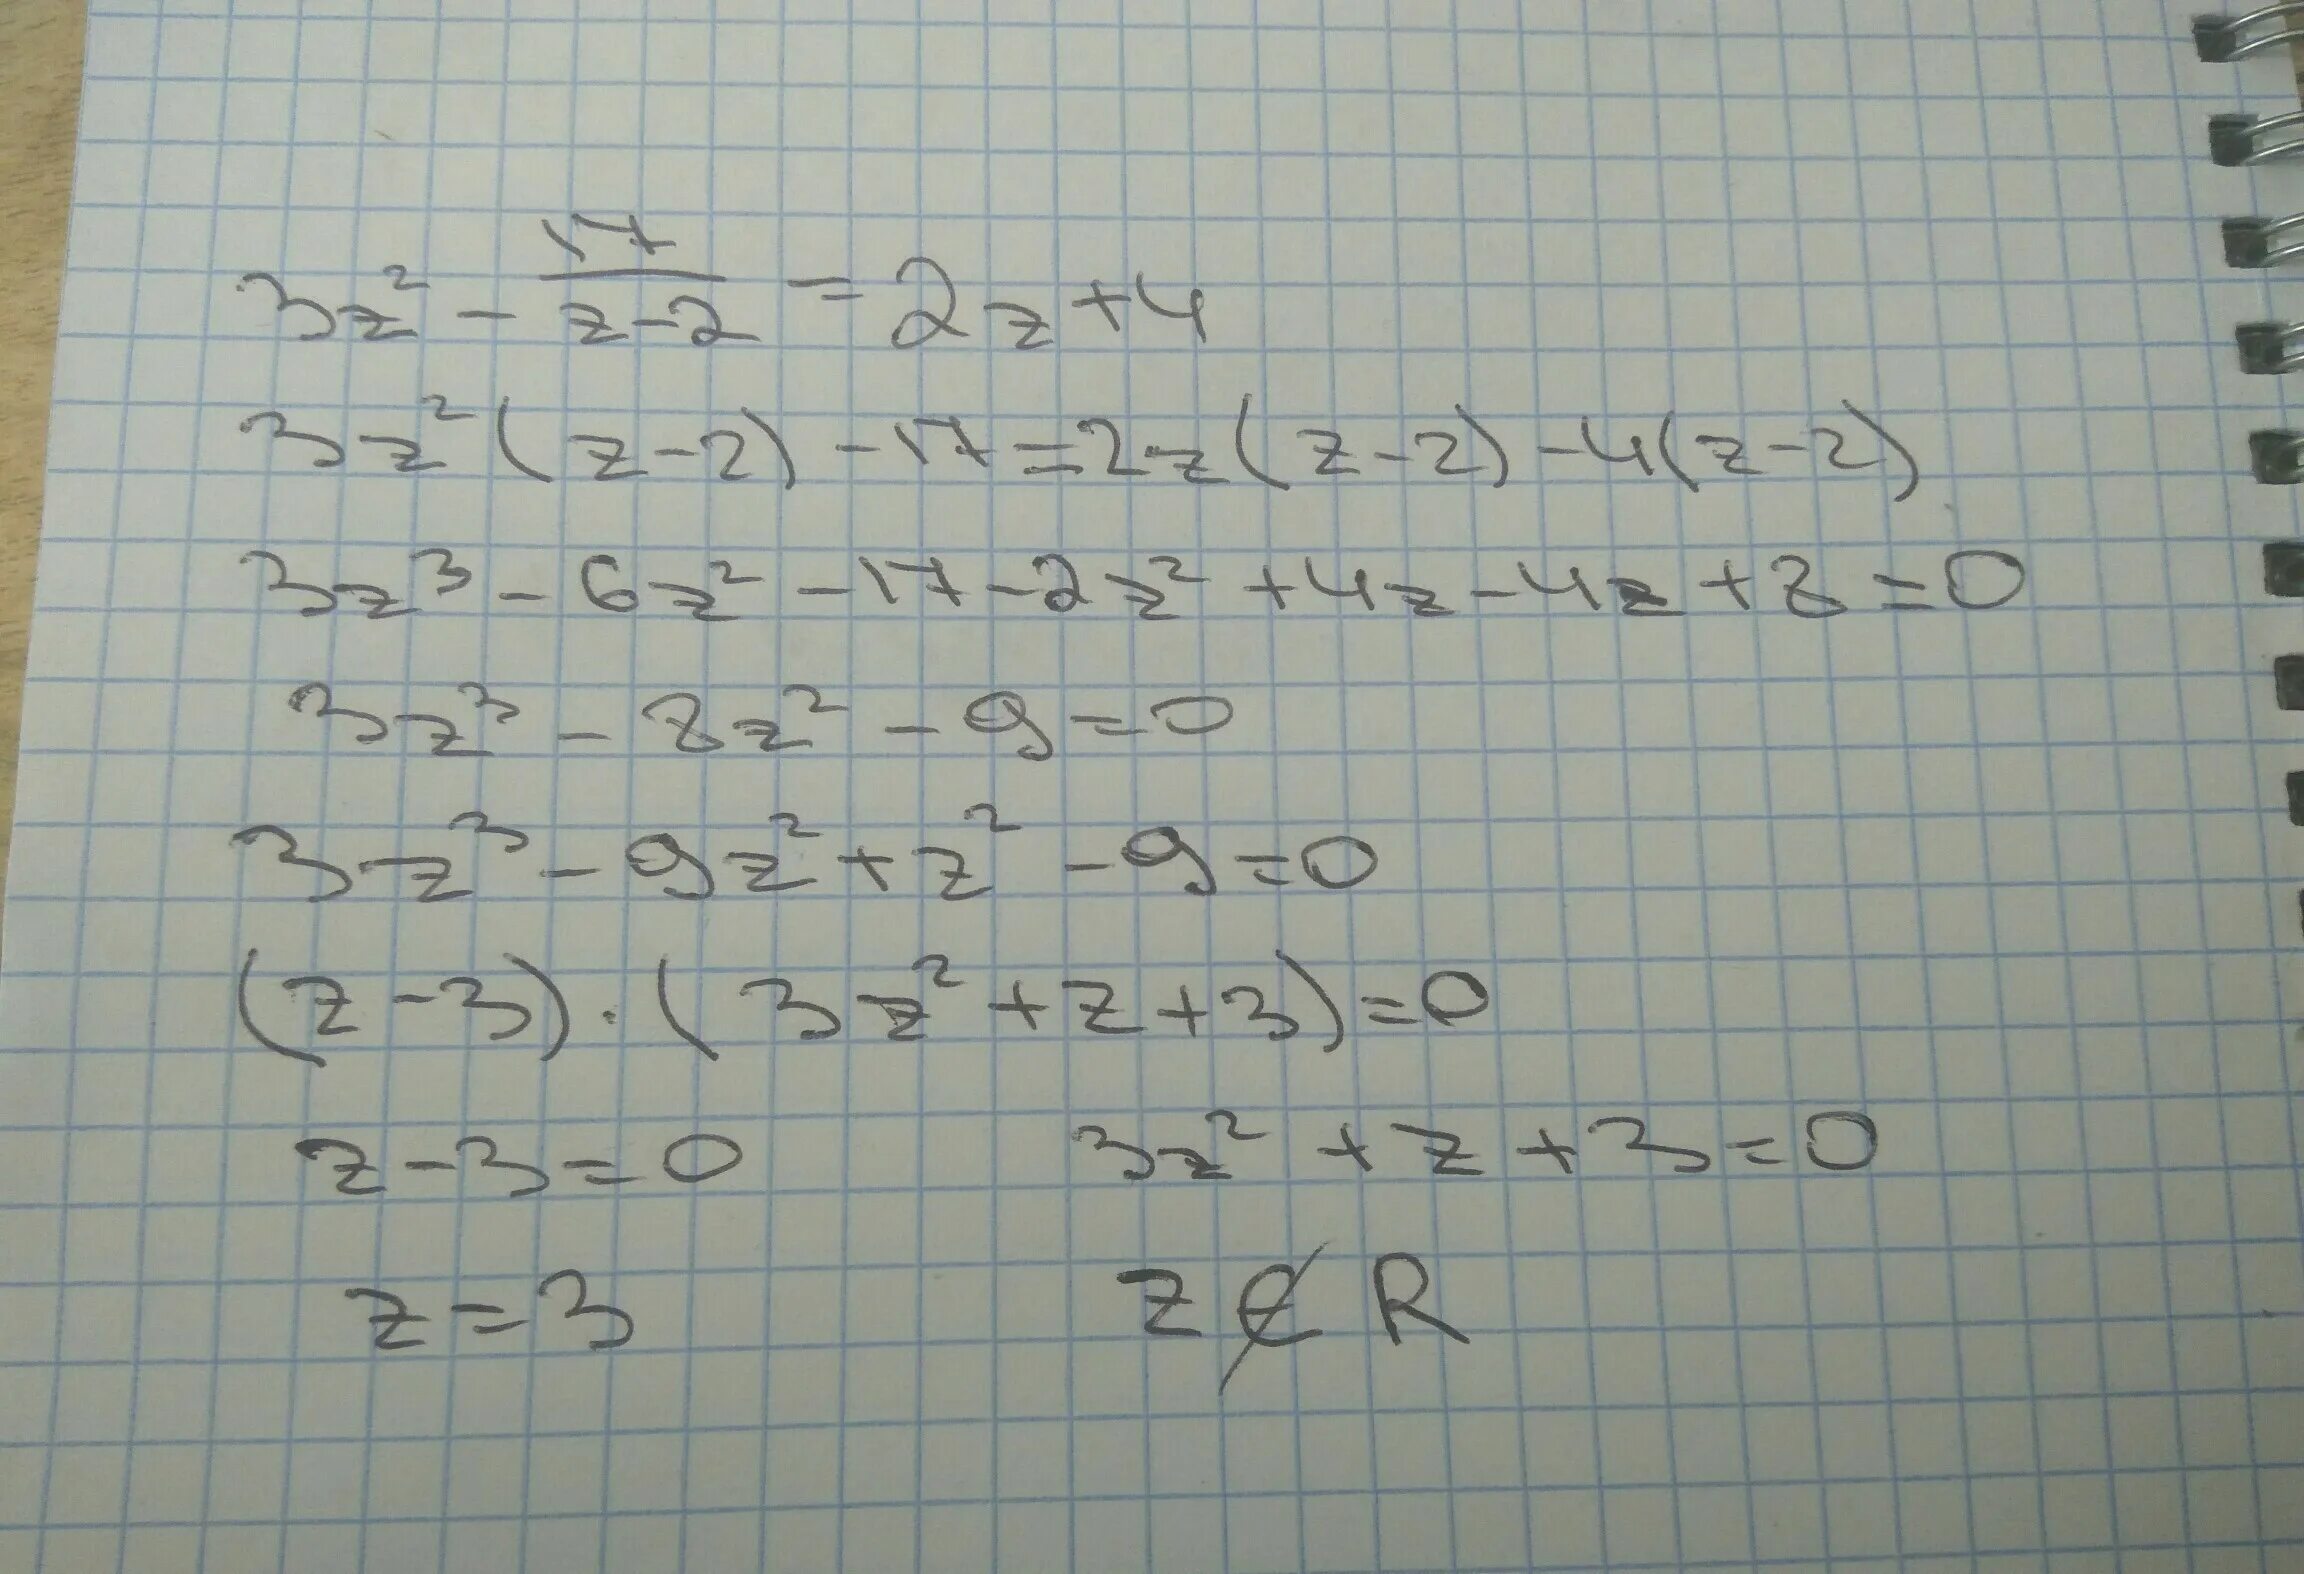 3z² - 17/(z-2) = 2z+4
3z²(z-2) -17=2z(z-2)-4(z-2)
3z³ - 6z² -17-2z² +4z-4z+8=0
3z³ - 8z² - 9=0
3z³ - 9z² + z² - 9=0
(z-3)·(3z²+z+3)=0
z-3=0 3z² + z + 3=0
z=3 z∉R